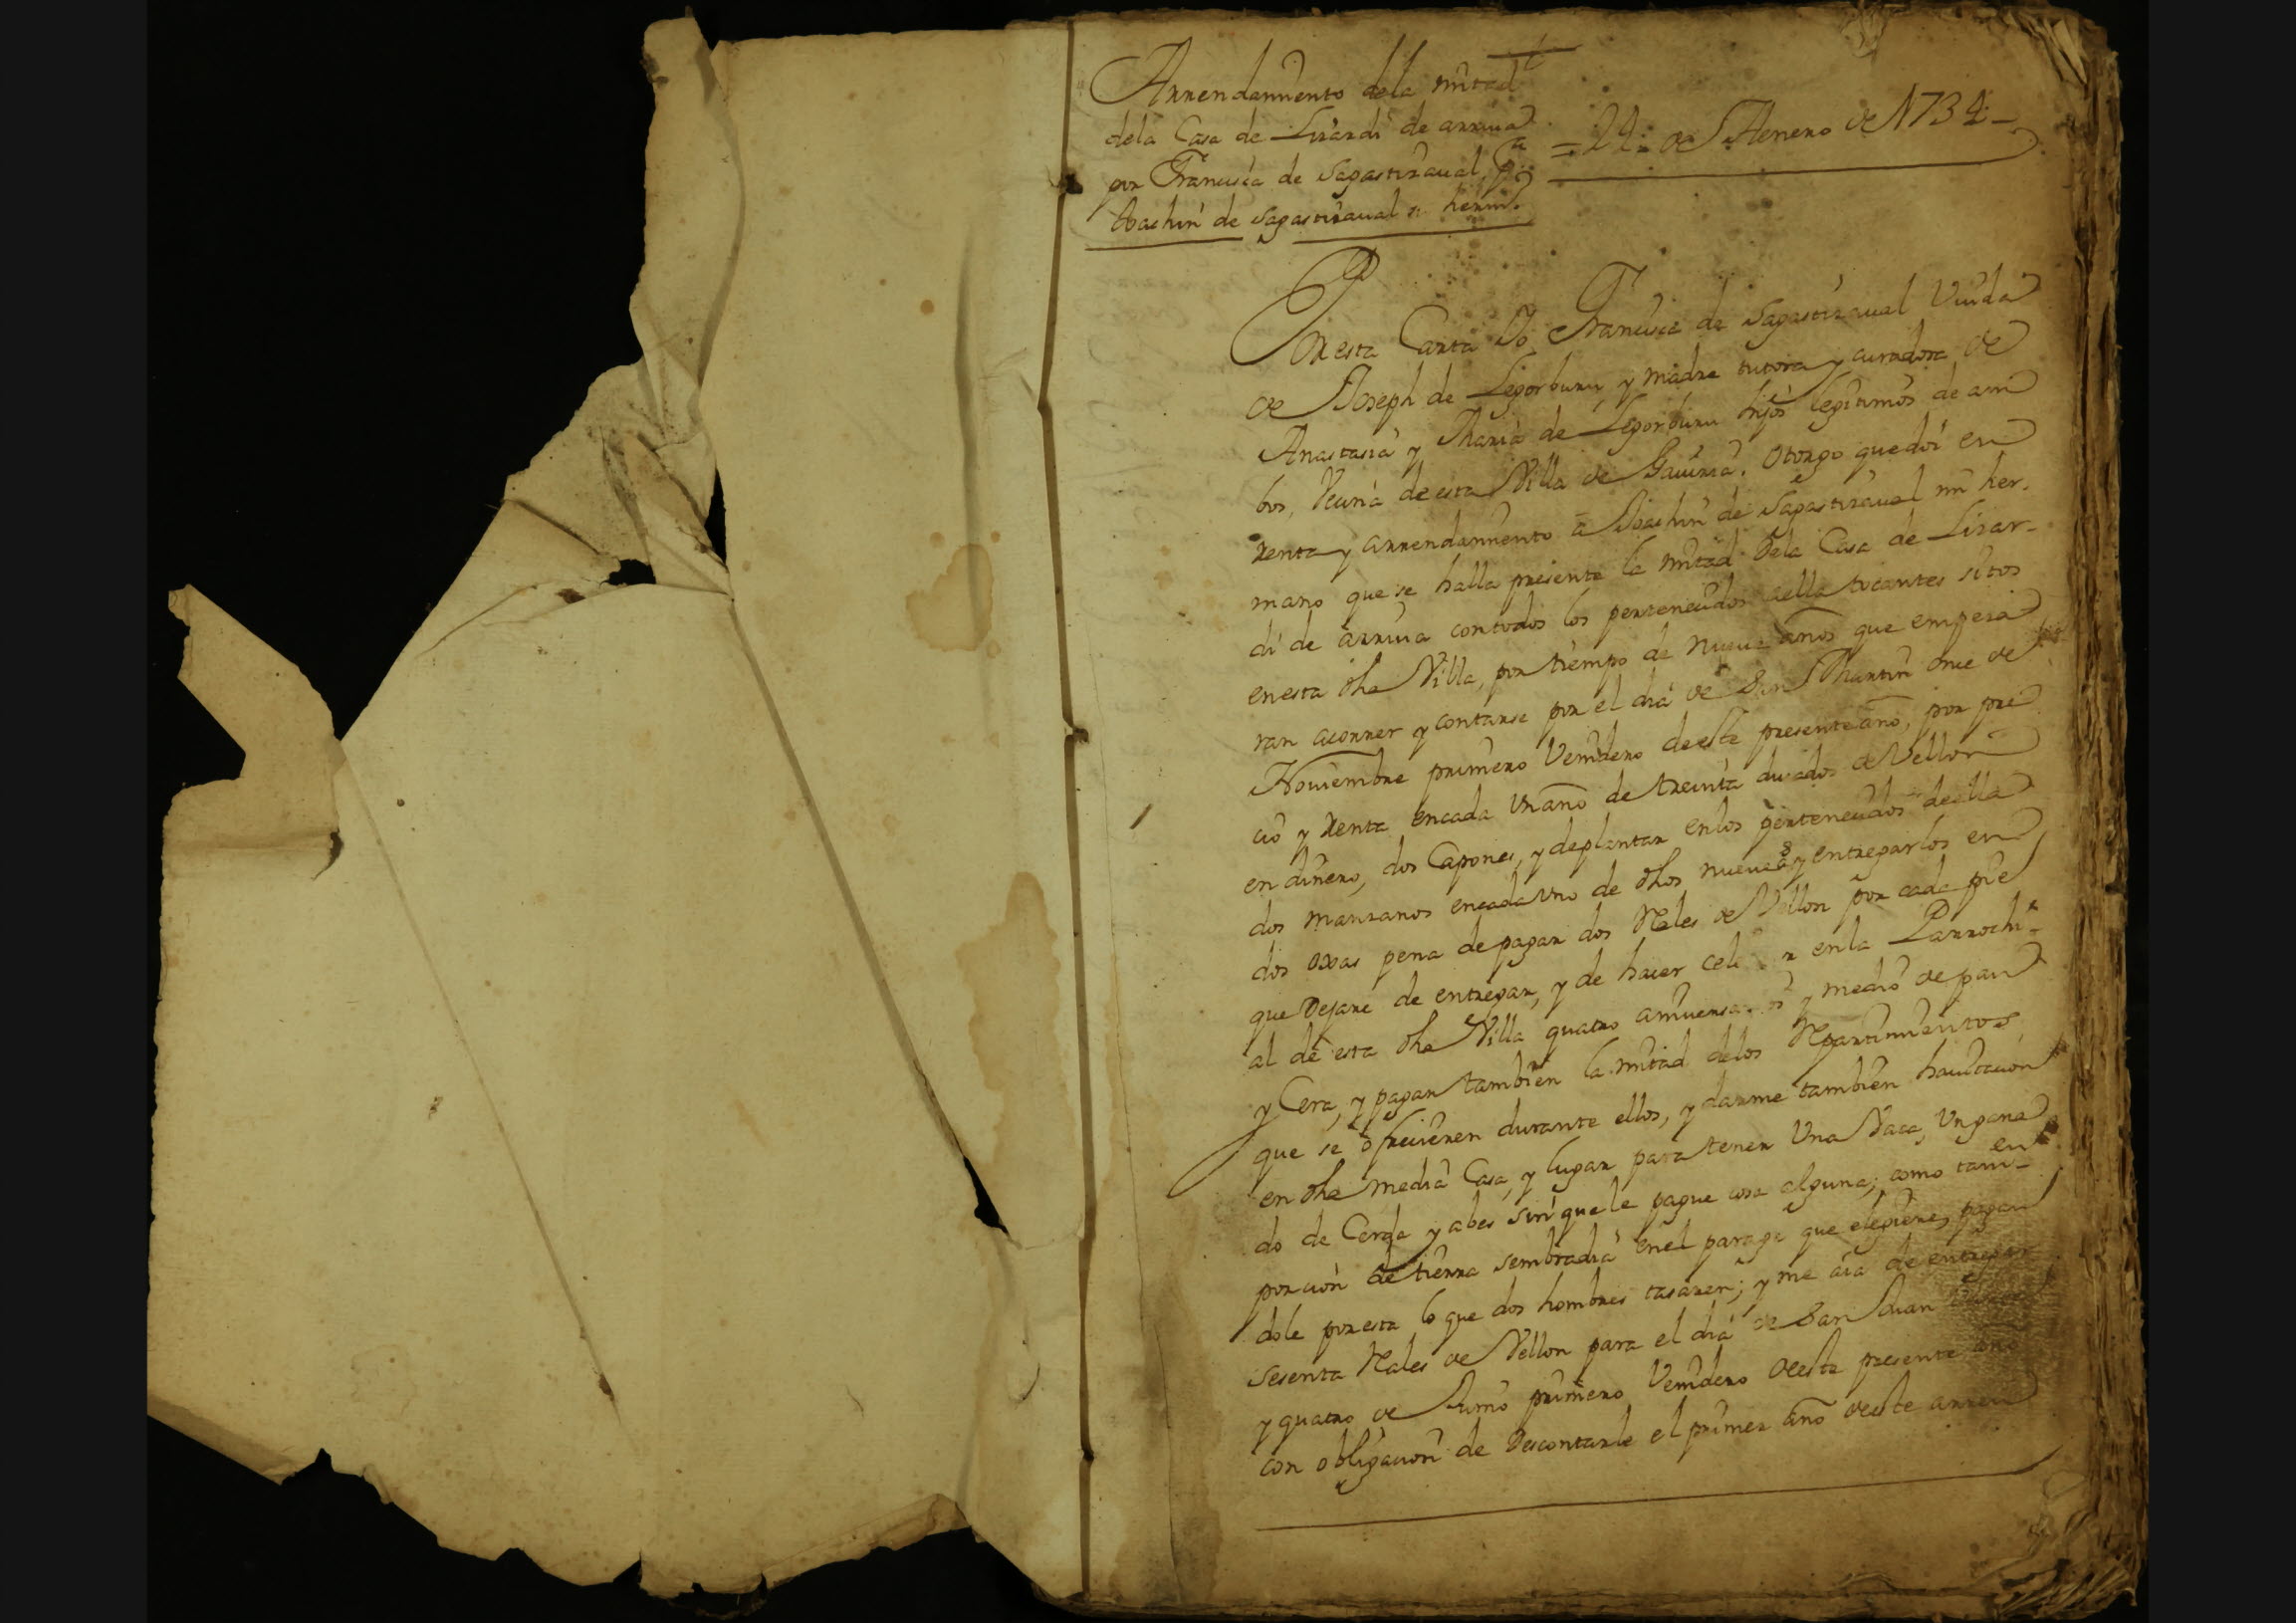 Arrendamiento dela mitad
dela Casa de Lisardi de arriua
por Francisca de Sagastizaual, Pa
Joachin de Sagastizaual su herm.
= 24: de Henero de 1734 =
Por esta Carta Yo Francisca de Sagastizaual Viuda
de Joseph de Legorburu, y madre tutora y curadora de
Anastasia y Maria de Legorburu hijos legitimos de am
bos, Vecina de esta Villa de Gauiria: Otorgo que doi en
renta y arrendamiento a Joachin de Sagastizaual mi her-
mano que se halla presente la mitad dela Casa de Lisar-
di de arriua contodos los pertenecidos aella tocantes sitos
enesta dha Villa, por tiempo de nueue años que empeza
ran acorrer y contarse por el dia de San Martin once de
Nouiembre primero Venidero deeste presente año, por pre
cio y Renta encada Vnaño de treinta ducados de Vellon
en dinero, dos Capones, y deplantar enlos pertenecidos deella
dos manzanos encadavno de dhos nueue as y entregarlos en
dos oxas pena depagar dos Rales de Vellon por cada pie
que Dejare de entregar, y de hacer en la Parrochi-
al de esta dha Villa quatro y medio de pan
y Cera, y pagar tambien la mitad delos Repartimientos
que se ofrecieren durante ellos, y darme tambien hauitacion
en dha media Casa, y lugar para tener Una Vaca, Un gana
do de Cerda y abes sin que le pague cosa alguna; como tam- en
porcion de tierra sembradia enel parage que eligiere, pagan
dole por esta lo que dos hombres tasaren; y me aia de entregar
sesenta Rales de Vellon para el dia de San Juan
y quatro de Junio primero Venidero deeste presente año
con obligacion de Descontarle el primer año deeste arren